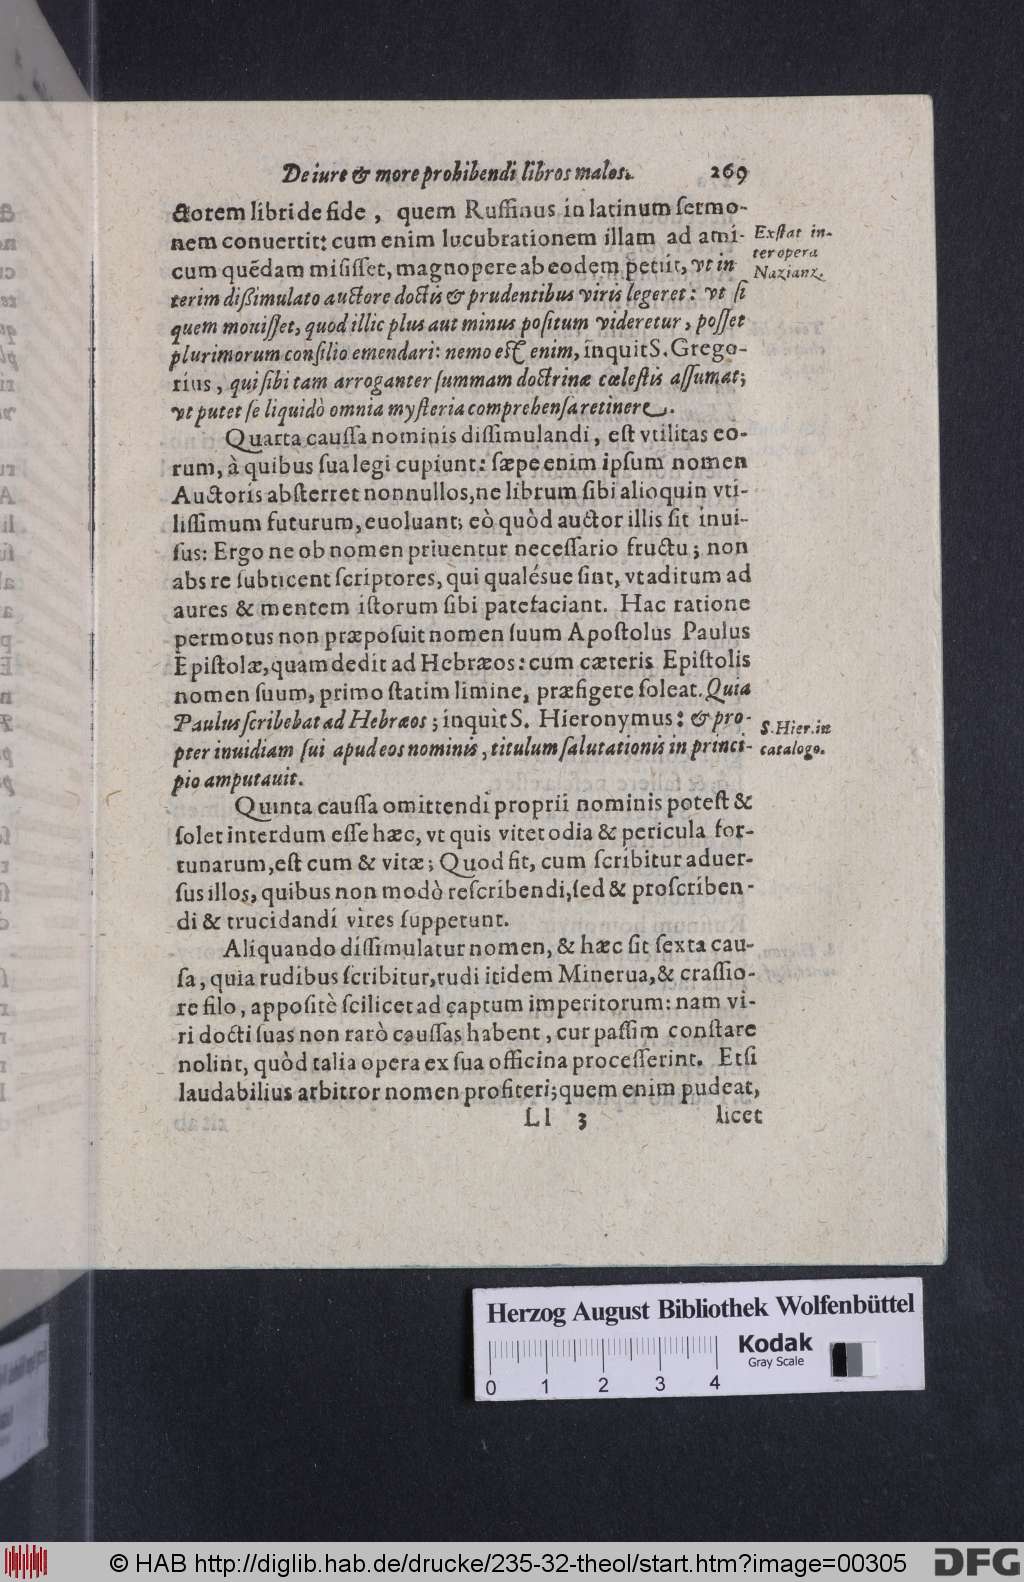 De iure & more prohibendi libros malos. 269
ctorem libri de fide, quem Ruffinus in latinum sermo-
nem conuertit: cum enim lucubrationem illam ad ami-
cum quẽdam misisset, magnopere ab eodem petiit, vt in
terim dißimulato auctore doctis & prudentibus viris legeret: vt si
quem mouisset, quod illic plus aut minus positum videretur, posset
plurimorum consilio emendari: nemo est enim, inquit S. Grego-
rius, qui sibi tam arroganter summam doctrinæ cœlestis assumat;
vt putet se liquidò omnia mysteria comprehensa retinere.
Exstat in-
ter opera
Nazianz.
Quarta caussa nominis dissimulandi, est vtilitas eo-
rum, à quibus sua legi cupiunt: sæpe enim ipsum nomen
Auctoris absterret nonnullos, ne librum sibi alioquin vti-
lissimum futurum, euoluant; eò quòd auctor illis sit inui-
sus: Ergo ne ob nomen priuentur necessario fructu; non
abs re subticent scriptores, qui qualésue sint, vt aditum ad
aures & mentem istorum sibi patefaciant. Hac ratione
permotus non præposuit nomen suum Apostolus Paulus
Epistolæ, quam dedit ad Hebræos: cum cæteris Epistolis
nomen suum, primo statim limine, præfigere soleat. Quia
Paulus scribebat ad Hebræos; inquit S. Hieronymus: & pro-
pter inuidiam sui apud eos nominis, titulum salutationis in princi-
pio amputauit.
S. Hier. in
catalogo.
Quinta caussa omittendi proprii nominis potest &
solet interdum esse hæc, vt quis vitet odia & pericula for-
tunarum, est cum & vitæ; Quod fit, cum scribitur aduer-
sus illos, quibus non modò rescribendi, sed & proscriben-
di & trucidandi vires suppetunt.
Aliquando dissimulatur nomen, & hæc sit sexta cau-
sa, quia rudibus scribitur, rudi itidem Minerua, & crassio-
re filo, appositè scilicet ad captum imperitorum: nam vi-
ri docti suas non rarò caussas habent, cur passim constare
nolint, quòd talia opera ex sua officina processerint. Etsi
laudabilius arbitror nomen profiteri; quem enim pudeat,
Ll 3 licet
Herzog August Bibliothek Wolfenbüttel
Kodak
Gray Scale
0 1 2 3 4
© HAB http://diglib.hab.de/drucke/235-32-theol/start.htm?image=00305
DFG